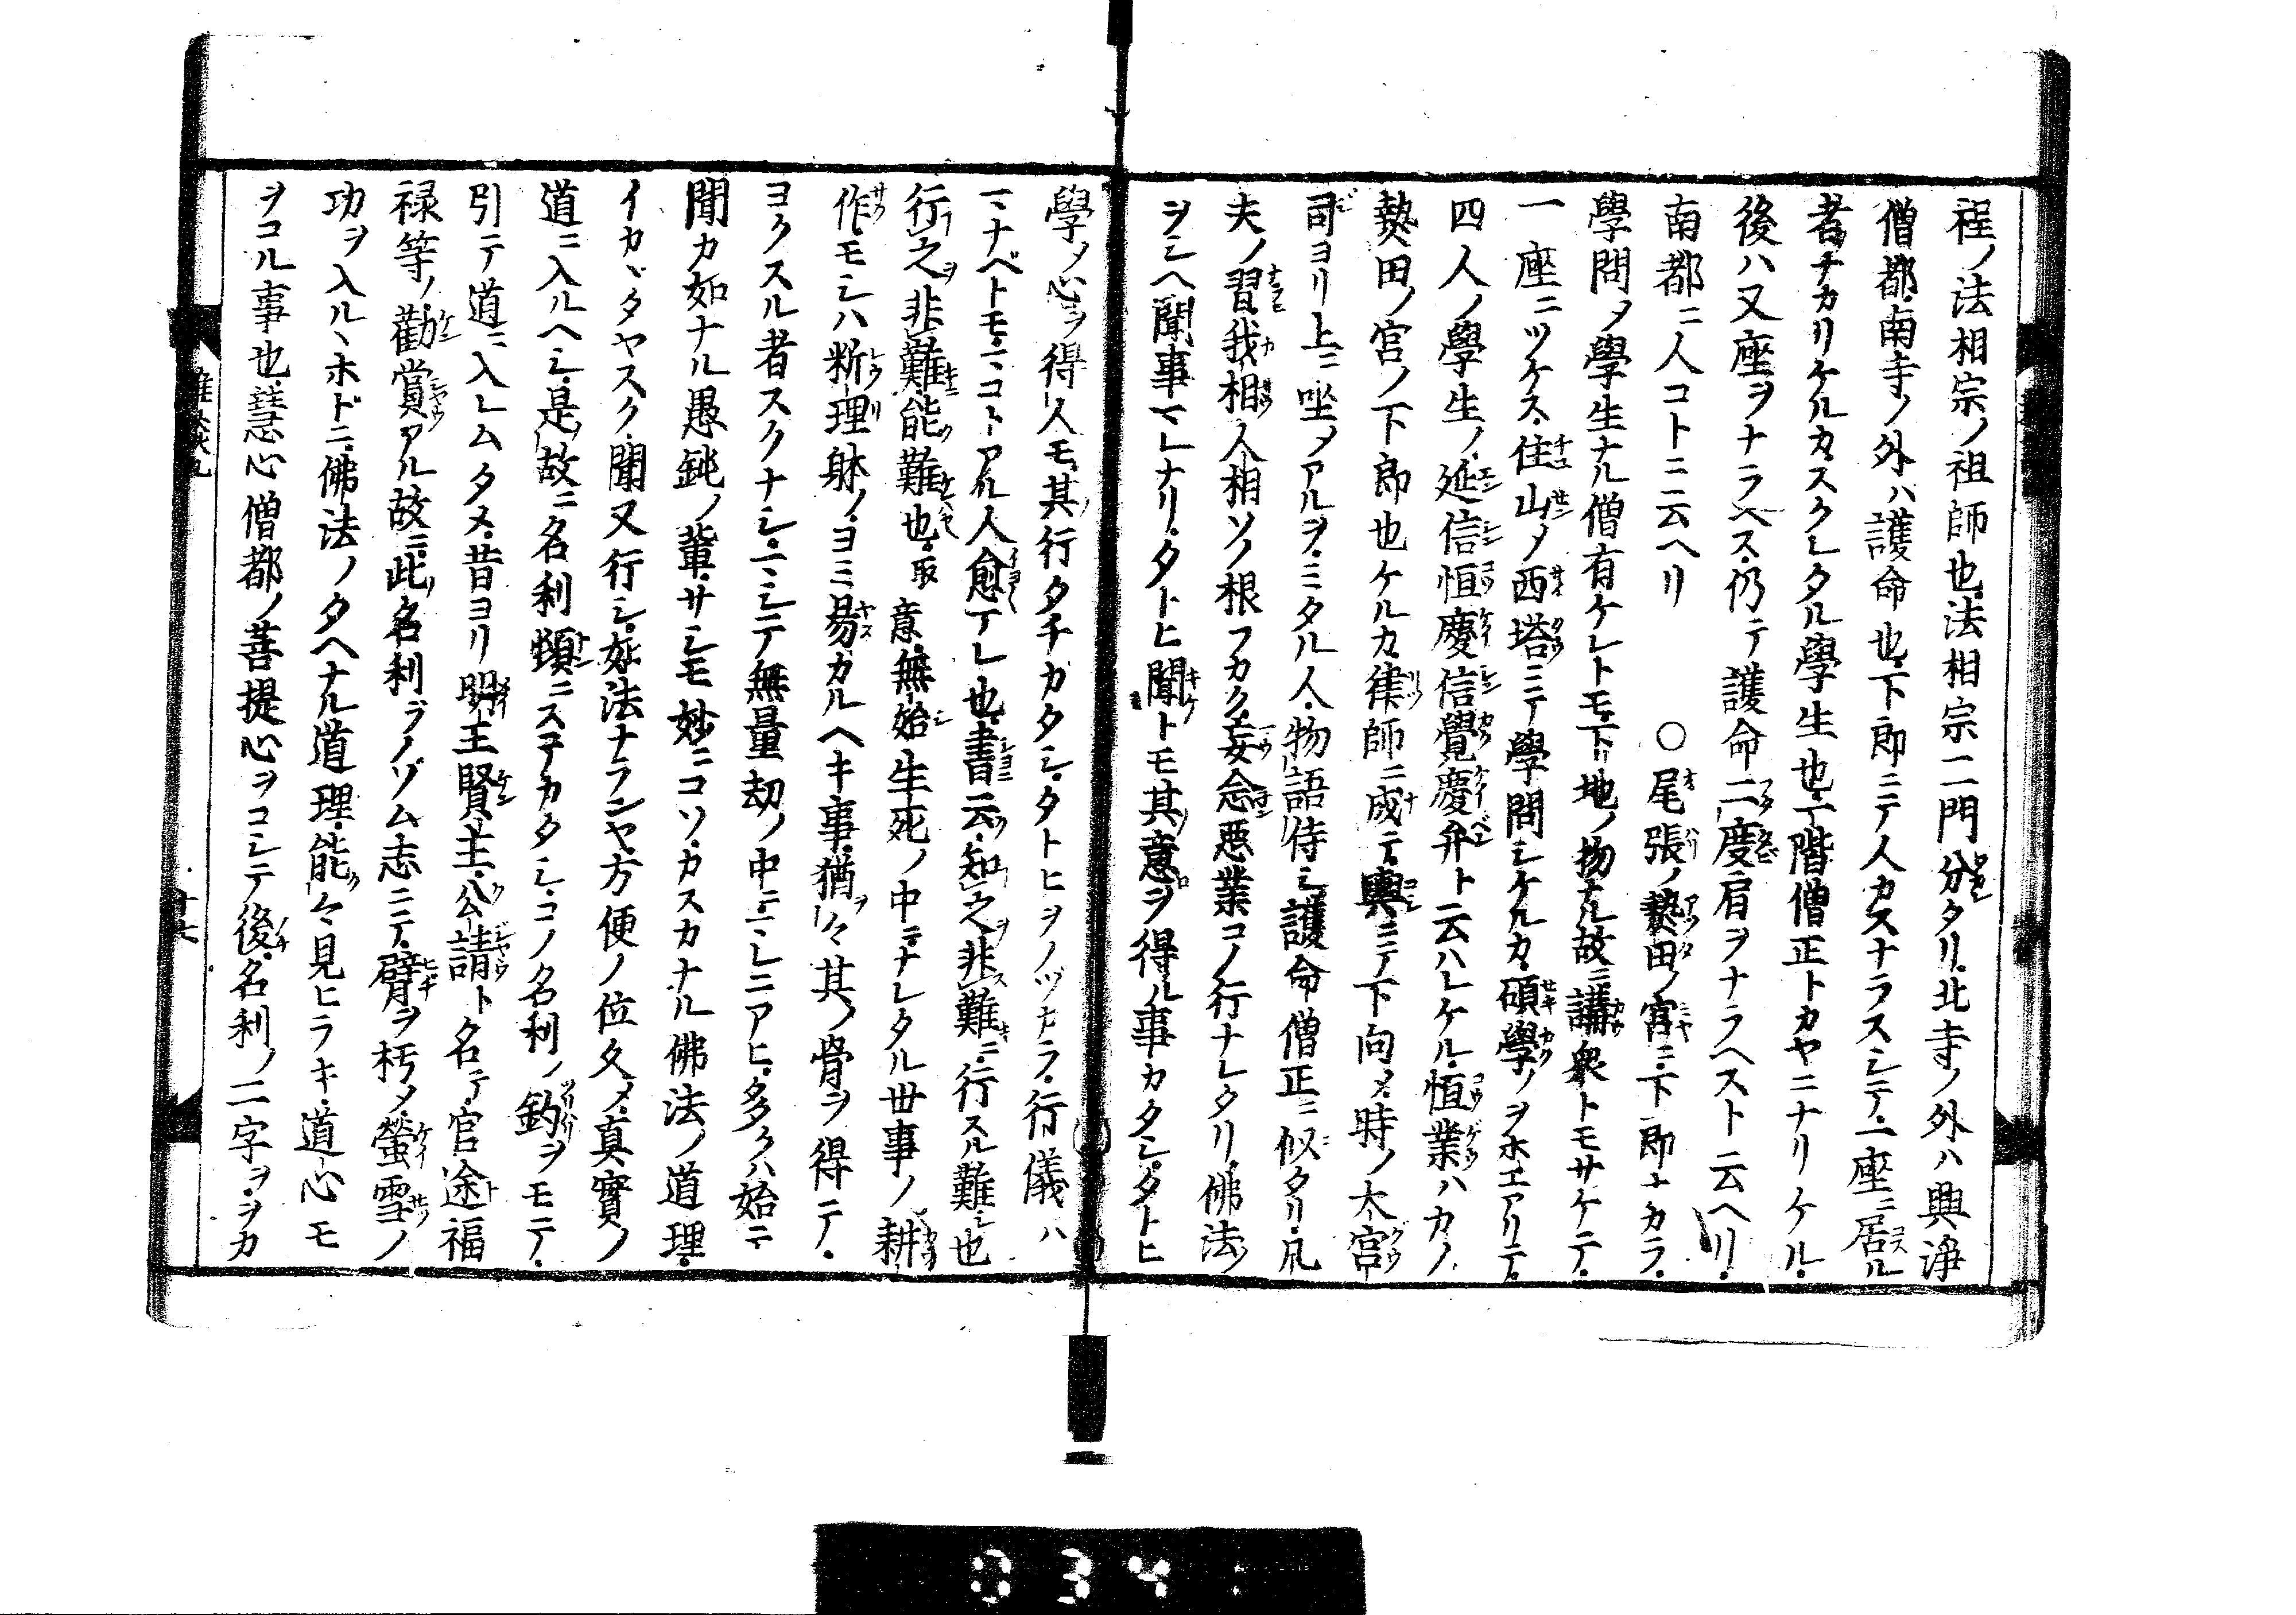 程ノ法相宗ノ祖師也法相宗二門分タリ北寺ノ外ハ興浄
僧都南寺ノ外ハ護命也下郎ニテ人カスナラスシテ一座ニ居ル
者ナカリケルカスクレタル學生也一階僧正トカヤニナリケル
後ハ又座ヲナラヘス仍テ護命二度肩ヲナラヘスト云ヘリ
南都ニ人コトニ云ヘリ　○尾張ノ熱田ノ宮ニ下郎ナカラ
學問メ學生ナル僧有ケレトモ下地ノ物ナル故ニ講衆トモサケテ
一座ニツケス住山メ西塔ニテ學問シケルカ碩學ノヲホエアリテ
四人ノ學生ノ延信恒慶信覺慶弁ト云ハレケル恒業ハカノ
熱田ノ宮ノ下郎也ケルカ律師ニ成テ輿ニテ下向メ時ノ大宮
司ヨリ上ニ坐メアルヲミタル人物語侍シ護命僧正ニ似タリ凡
夫ノ習我相人相ソノ根フカク妄念惡業コノ行ナレタリ佛法
ヲシヘ聞事マレナリタトヒ聞トモ其意ヲ得ル事カタシタトヒ
學メ心ヲ得人モ其行タチカタシタトヒヲノツカラ行儀ハ
一ナベトモ一コトアル人愈マレ也書云知之非難ニ行スル難シ也
行之非難能難也取意無始生死ノ中ニナレタル世事ノ耕
作モシハ断理躰ノヨミ易カルヘキ事猶々其ノ骨ヲ得ニテ
ヨクスル者スクナシ一シテ無量劫ノ中ニ一レニアヒ多クハ始テ
聞カ如ナル愚鈍ノ輩サシモ妙ニコソカスカナル佛法ノ道理
イカヾタヤスク聞又行シ如法ナランヤ方便ノ位久メ真實ノ
道ニ入ルヘシ是故ニ名利頓ニステカタシコノ名利ノ釣ヲモテ
引テ道ニ入レムタメ昔ヨリ明王賢主公請ト名テ官途福
禄等ノ勸賞アル故ニ此名利ヲノゾム志ニテ臂ヲ朽メ螢雪ノ
功ヲ入ルヽホドニ佛法ノタヘナル道理能々見ヒラキ道心モ
ヲコル事也慧心僧都ノ菩提心ヲコシテ後名利ノ二字ヲヲカ
十七
034